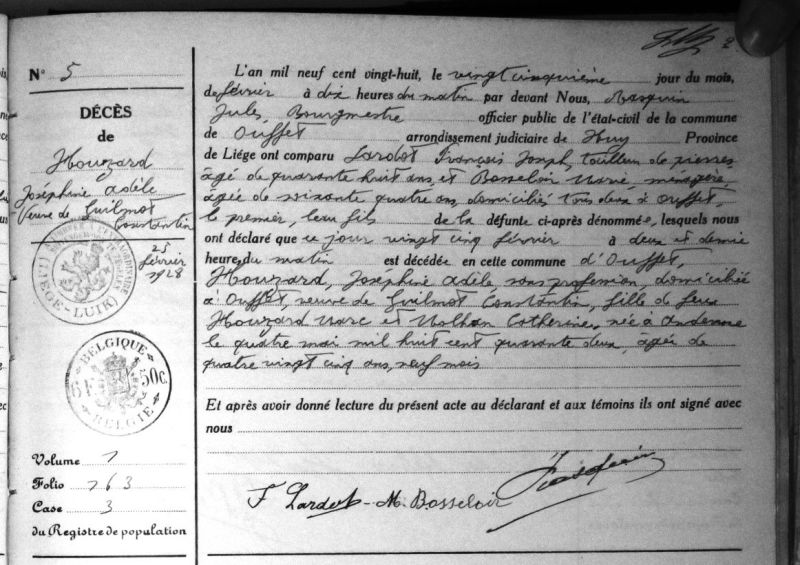 N° 5
DÉCÈS
de
Houzard
Joséphine Adèle
Veuve de Guilmot
Constantin
25
février
1928
(LIÉGE-LUIK)
BELGIQUE
6F 50c.
BELGIE
Volume 1
Folio 163
Case 3
du Registre de population
L'an mil neuf cent vingt-huit, le vingt cinquième jour du mois,
de février à dix heures du matin par devant Nous,
Jules, Bourgmestre officier public de l'état-civil de la commune
de Ouffet arrondissement judiciaire de Huy Province
de Liége ont comparu Lardot François Joseph, tailleur de pierres
âgé de quarante huit ans, et Bosseloir Marie, ménagère,
agée de soixante quatre ans, domiciliés tous deux à Ouffet,
le premier, beau fils de la défunte ci-après dénommée, lesquels nous
ont déclaré que ce jour vingt cinq février à deux et demie
heures du matin est décédée en cette commune d'Ouffet,
Houzard, Joséphine Adèle, sans profession, domiciliée
à Ouffet, veuve de Guilmot Constantin, fille de feus
Houzard Marc et Catherine, née à Andenne
le quatre mai mil huit cent quarante deux, agée de
quatre vingt cinq ans, neuf mois
Et après avoir donné lecture du présent acte au déclarant et aux témoins ils ont signé avec
nous
F Lardot - M. Bosseloir